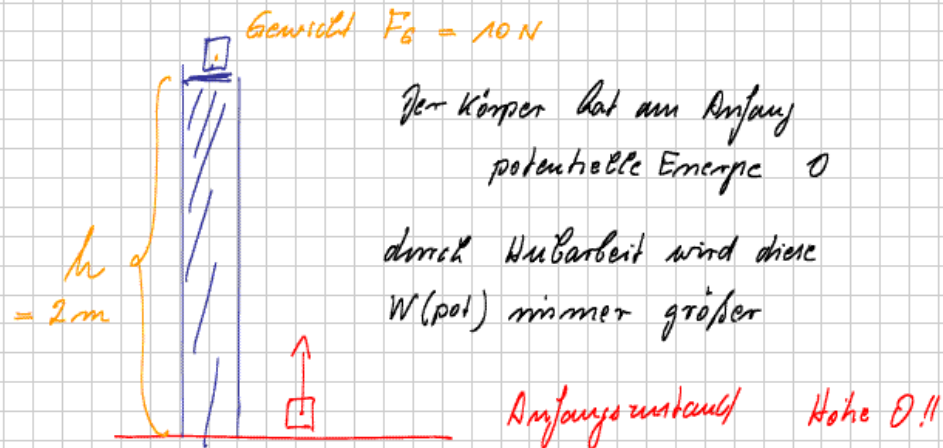 Gewicht F_G = 10 N
Der Körper hat am Anfang
potentielle Energie 0
durch Hubarbeit wird diese
W(pot) immer größer
h
= 2 m
Anfangszustand Höhe 0!!